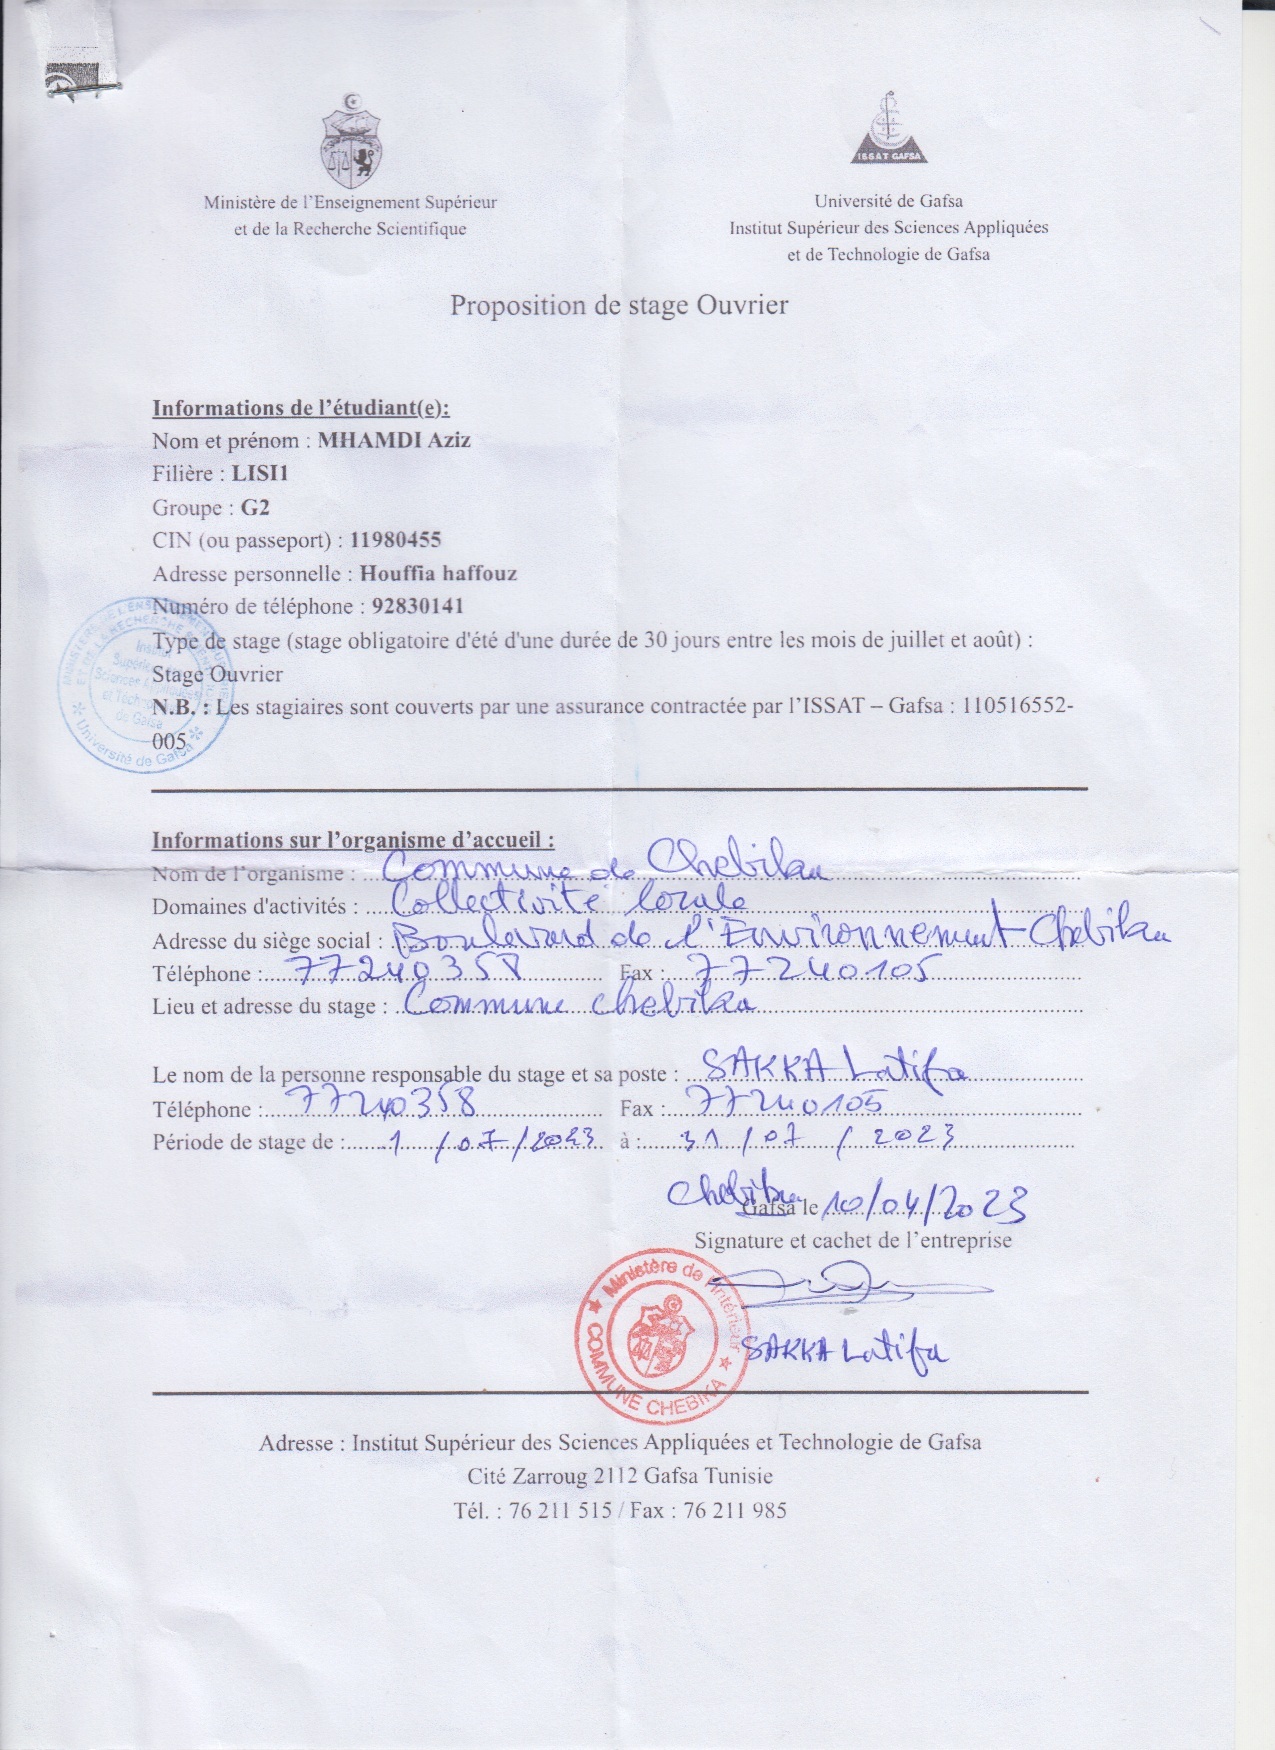 ISSAT GAFSA
Ministère de l'Enseignement Supérieur
et de la Recherche Scientifique
Université de Gafsa
Institut Supérieur des Sciences Appliquées
et de Technologie de Gafsa
Proposition de stage Ouvrier
Informations de l'étudiant(e):
Nom et prénom : MHAMDI Aziz
Filière : LISI1
Groupe : G2
CIN (ou passeport) : 11980455
Adresse personnelle : Houffia haffouz
Numéro de téléphone : 92830141
Type de stage (stage obligatoire d'été d'une durée de 30 jours entre les mois de juillet et août) :
Stage Ouvrier
N.B. : Les stagiaires sont couverts par une assurance contractée par l'ISSAT – Gafsa : 110516552-
005
Institut
Supérieur des
Sciences Appliquées
et Technologie
de Gafsa
Université de Gafsa
Informations sur l'organisme d'accueil :
Nom de l'organisme : Commune de Chebika
Domaines d'activités : Collectivité locale
Adresse du siège social : Boulevard de l'Environnement Chebika
Téléphone : 77240358 Fax : 77240105
Lieu et adresse du stage : Commune chebika
Le nom de la personne responsable du stage et sa poste : SAKKA Latifa
Téléphone : 77240358 Fax : 77240105
Période de stage de : 1/07/2023 à : 31/07/2023
Chebika
Gafsa le 10/04/2023
Signature et cachet de l'entreprise
Ministère de l'intérieur
COMMUNE CHEBIKA
SAKKA Latifa
Adresse : Institut Supérieur des Sciences Appliquées et Technologie de Gafsa
Cité Zarroug 2112 Gafsa Tunisie
Tél. : 76 211 515 / Fax : 76 211 985